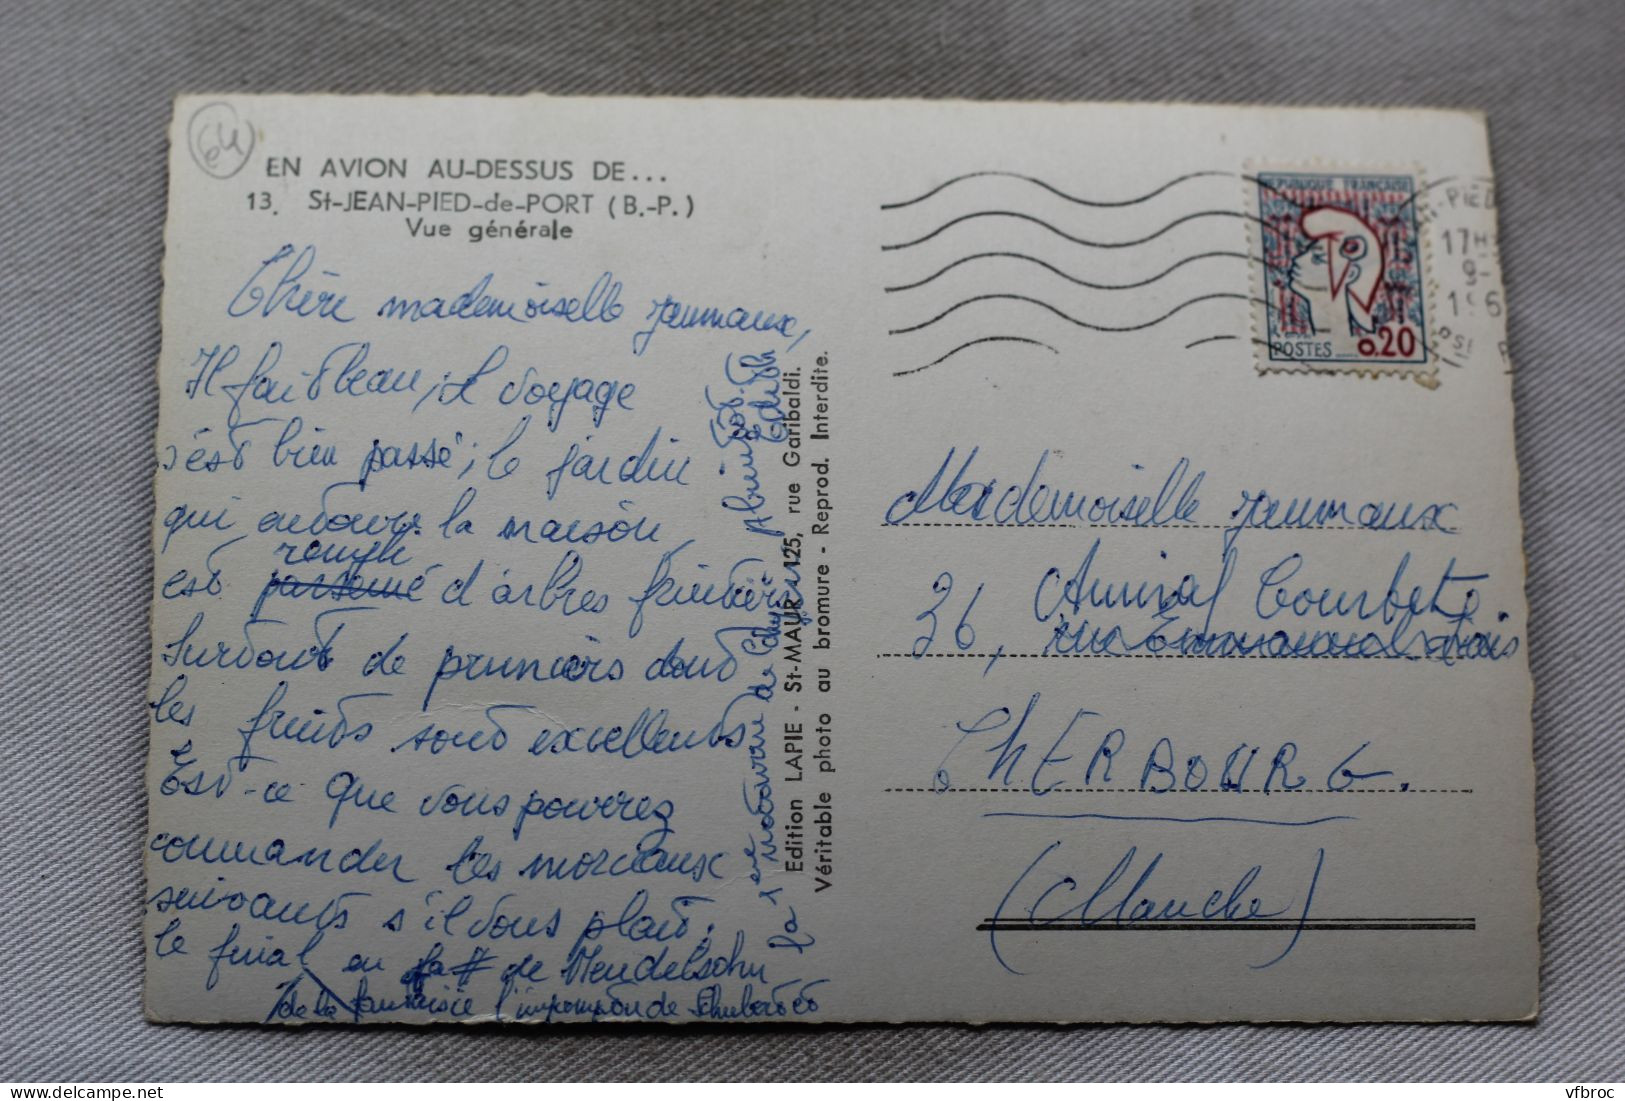 64
EN AVION AU-DESSUS DE...
13. St-JEAN-PIED-de-PORT (B.-P.)
Vue générale
Chère mademoiselle Jeumaux,
Il fait beau, il voyage
s'est bien passé, le jardin
qui entoure la maison
rempli
est parsemé d'arbres fruitiers
surtout de pruniers dont
les fruits sont excellents
Est-ce que vous pouvez
commander les morceaux
suivants s'il vous plait.
le final en fa # de Mendelsohn
de la fantaisie l'impromptu de Schubert et
la 1ere
à bientôt
Edith
Edition LAPIE - St-MAUR 125, rue Garibaldi.
Véritable photo au bromure - Reprod. Interdite.
REPUBLIQUE FRANÇAISE
POSTES
0.20
-PIED
17H
9-
196
Mademoiselle Jeumaux
Amiral Courbet
26, rue Emmanuel Liais
CHERBOURG.
(Manche)
vfbroc